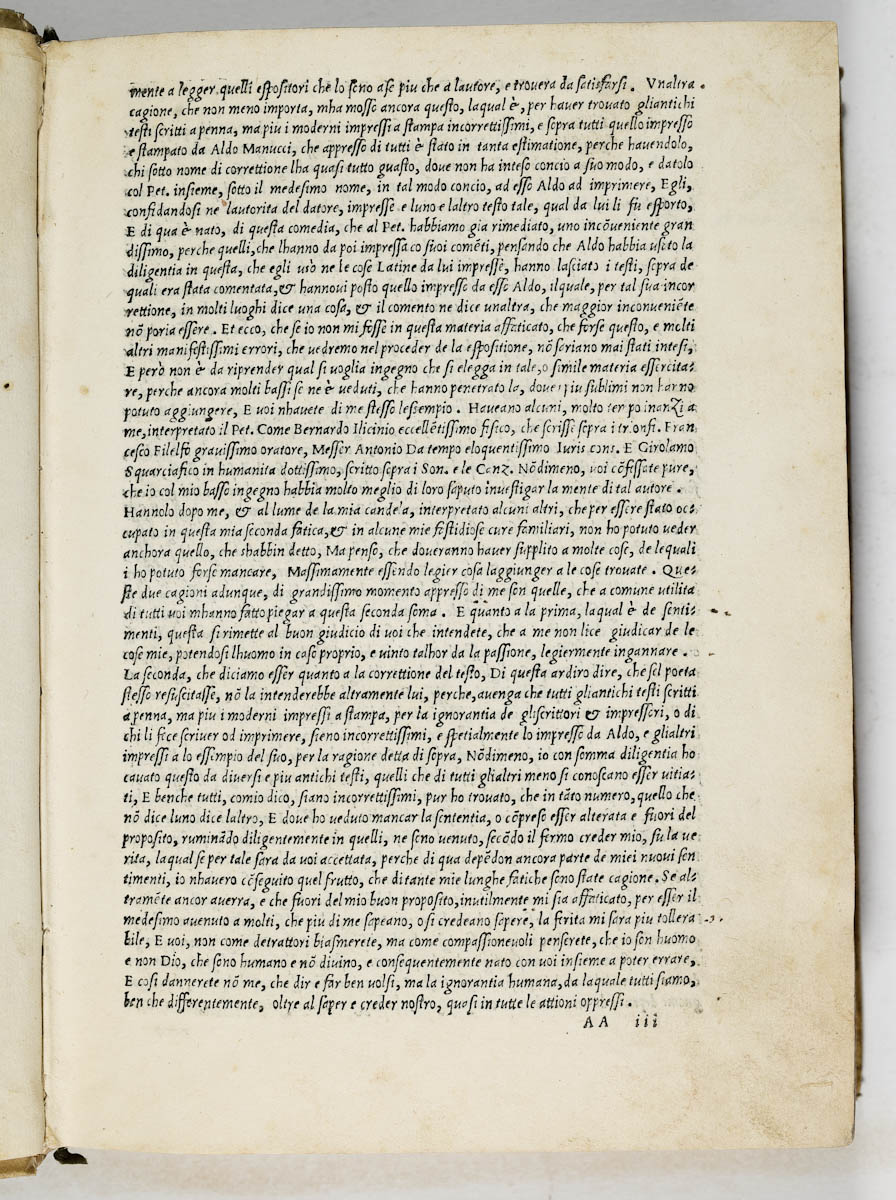 mente a legger quelli espositori che lo sono a se piu che a lautore, e trovera da satisfarsi. Vnaltra
cagione, che non meno importa, mha mosso ancora questo, laqual è, per haver trovato gliantichi
testi scritti a penna, ma piu i moderni impressi a stampa incorrettissimi, e sopra tutti quello impresso
e stampato da Aldo Manucci, che appresso di tutti è stato in tanta estimatione, perche havendolo,
chi sotto nome di correttione lha quasi tutto guasto, dove non ha inteso concio a suo modo, e datolo
col Pet. insieme, sotto il medesimo nome, in tal modo concio, ad esso Aldo ad imprimere, Egli,
confidandosi ne lautorita del datore, impresse e luno e laltro testo tale, qual da lui li fu esporto,
E di qua è nato, di questa comedia, che al Pet. habbiamo gia rimediato, uno incōueniente gran
dissimo, perche quelli, che lhanno da poi impressa co suoi comēti, pensando che Aldo habbia usato la
diligentia in questa, che egli usò ne le cose Latine da lui impresse, hanno lasciato i testi, sopra de
quali era stata comentata, & hannovi posto quello impresso da esso Aldo, ilquale, per tal sua incor
rettione, in molti luoghi dice una cosa, & il comento ne dice unaltra, che maggior inconueniēte
nō poria essere. Et ecco, che se io non mi fosse in questa materia affaticato, che forse questo, e molti
altri manifestissimi errori, che uedremo nel proceder de la espositione, nō seriano mai stati intesi,
E però non è da riprender qual si voglia ingegno che si elegga in tale, o simile materia essercita-
re, perche ancora molti bassi se ne è ueduti, che hanno penetrato la, dove i piu sublimi non hanno
potuto aggiungere, E voi nhavete di me stesso lessempio. Haveano alcuni, molto tempo inanzi a
me, interpretato il Pet. Come Bernardo Ilicinio eccellētissimo fisico, che scrisse sopra i trionfi. Fran
cesco Filelfo gravissimo oratore, Messer Antonio Da tempo eloquentissimo Iuris cons. E Girolamo
Squarciafico in humanita dottissimo, scritto sopra i Son. e le Canz. Nōdimeno, voi cōfessate pure,
che io col mio basso ingegno habbia molto meglio di loro saputo investigar la mente di tal autore.
Hannolo dopo me, & al lume de la mia candela, interpretato alcuni altri, che per essere stato oc-
cupato in questa mia seconda fatica, & in alcune mie fastidiose cure familiari, non ho potuto veder
anchora quello, che shabbin detto, Ma penso, che doveranno haver supplito a molte cose, de lequali
i ho potuto forse mancare, Massimamente essendo legier cosa laggiunger a le cose trouate. Que-
ste due cagioni adunque, di grandissimo momento appresso di me son quelle, che a comune utilita
di tutti voi mhanno fatto piegar a questa seconda soma. E quanto a la prima, laqual è de senti-
menti, questa si rimette al buon giudicio di voi che intendete, che a me non lice giudicar de le
cose mie, potendosi lhuomo in caso proprio, e vinto talhor da la passione, legiermente ingannare.
La seconda, che diciamo esser quanto a la correttione del testo, Di questa ardiro dire, che sel poeta
stesso resuscitasse, nō la intenderebbe altramente lui, perche, auenga che tutti gliantichi testi scritti
a penna, ma piu i moderni impressi a stampa, per la ignorantia de gliscrittori & impressori, o di
chi li fece scriver od imprimere, sieno incorrettissimi, e spetialmente lo impresso da Aldo, e glialtri
impressi a lo essempio del suo, per la ragione detta di sopra, Nōdimeno, io con somma diligentia ho
cauato questo da diversi e piu antichi testi, quelli che di tutti glialtri meno si conoscano esser uitia-
ti, E benche tutti, comio dico, siano incorrettissimi, pur ho trovato, che in tāto numero, quello che
nō dice luno dice laltro, E dove ho veduto mancar la sententia, o cōpreso esser alterata e fuori del
proposito, ruminādo diligentemente in quelli, ne sono venuto, secōdo il fermo creder mio, su la ve
rita, laqual se per tale sara da voi accettata, perche di qua depēdon ancora parte de miei nuovi sen
timenti, io nhavero cōseguito quel frutto, che di tante mie lunghe fatiche sono state cagione. Se al-
tramēte ancor averra, e che fuori del mio buon proposito, inutilmente mi sia affaticato, per esser il
medesimo avenuto a molti, che più di me sapeano, o si credeano sapere, la ferita mi sara piu tollera
bile, E voi, non come detrattori biasmerete, ma come compassionevoli penserete, che io son huomo
e non Dio, che sono humano e nō divino, e consequentemente nato con voi insieme a poter errare,
E cosi dannerete nō me, che dir e far ben volsi, ma la ignorantia humana, da laquale tutti siamo,
ben che differentemente, oltre al saper e creder nostro, quasi in tutte le attioni oppressi.
AA iii